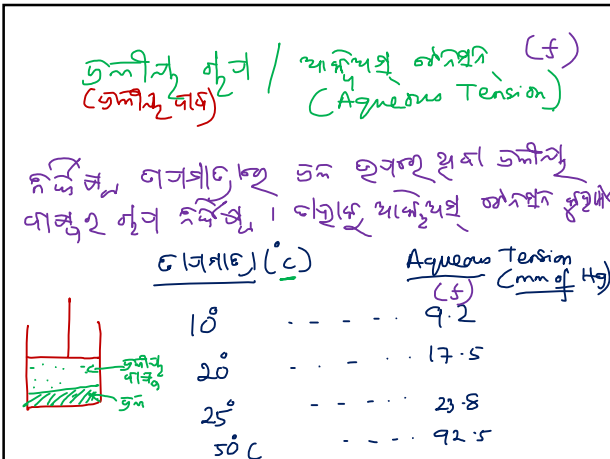 ଜଳୀୟ ଚାପ / ଆକ୍ୱିଅସ୍ ଟେନସନ (f)
(ଜଳୀୟ ବାଷ୍ପ) (Aqueous Tension)
ନିର୍ଦ୍ଦିଷ୍ଟ ତାପମାତ୍ରାରେ ଜଳ ଉପରେ ଥିବା ଜଳୀୟ
ବାଷ୍ପର ଚାପ ନିର୍ଦ୍ଦିଷ୍ଟ । ତାହାକୁ ଆକ୍ୱିଅସ୍ ଟେନସନ
ତାପମାତ୍ରା (°C) Aqueous Tension
(f) (mm of Hg)
10° - - - - .. 9.2
20° .. - - . 17.5
25° - - - - . . 23.8
50°C - - - . . 92.5
ଜଳୀୟ
ବାଷ୍ପ
ଜଳ